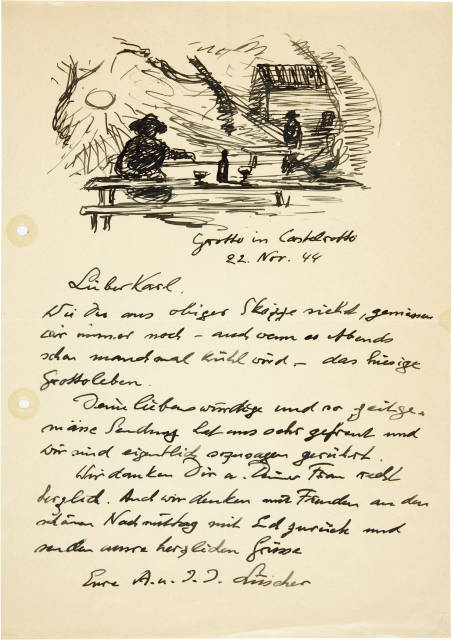 Grotto in Castelrotto
22. Nov. 44
Lieber Karl.
Wie Du aus obiger Skizze siehst, geniessen
wir immer noch – auch wenn es Abends
schon manchmal kühl wird – das hiesige
Grottoleben.
Deine liebenswürdige und so "zeitge-
mässe Sendung hat uns sehr gefreut und
wir sind eigentlich sozusagen gerührt.
Wir danken Dir u. Deiner Frau recht
herzlich. Auch wir denken mit Freuden an den
schönen Nachmittag mit Ed zurück und
senden unsre herzlichen Grüsse
Eure A. u. I. I. Lüscher